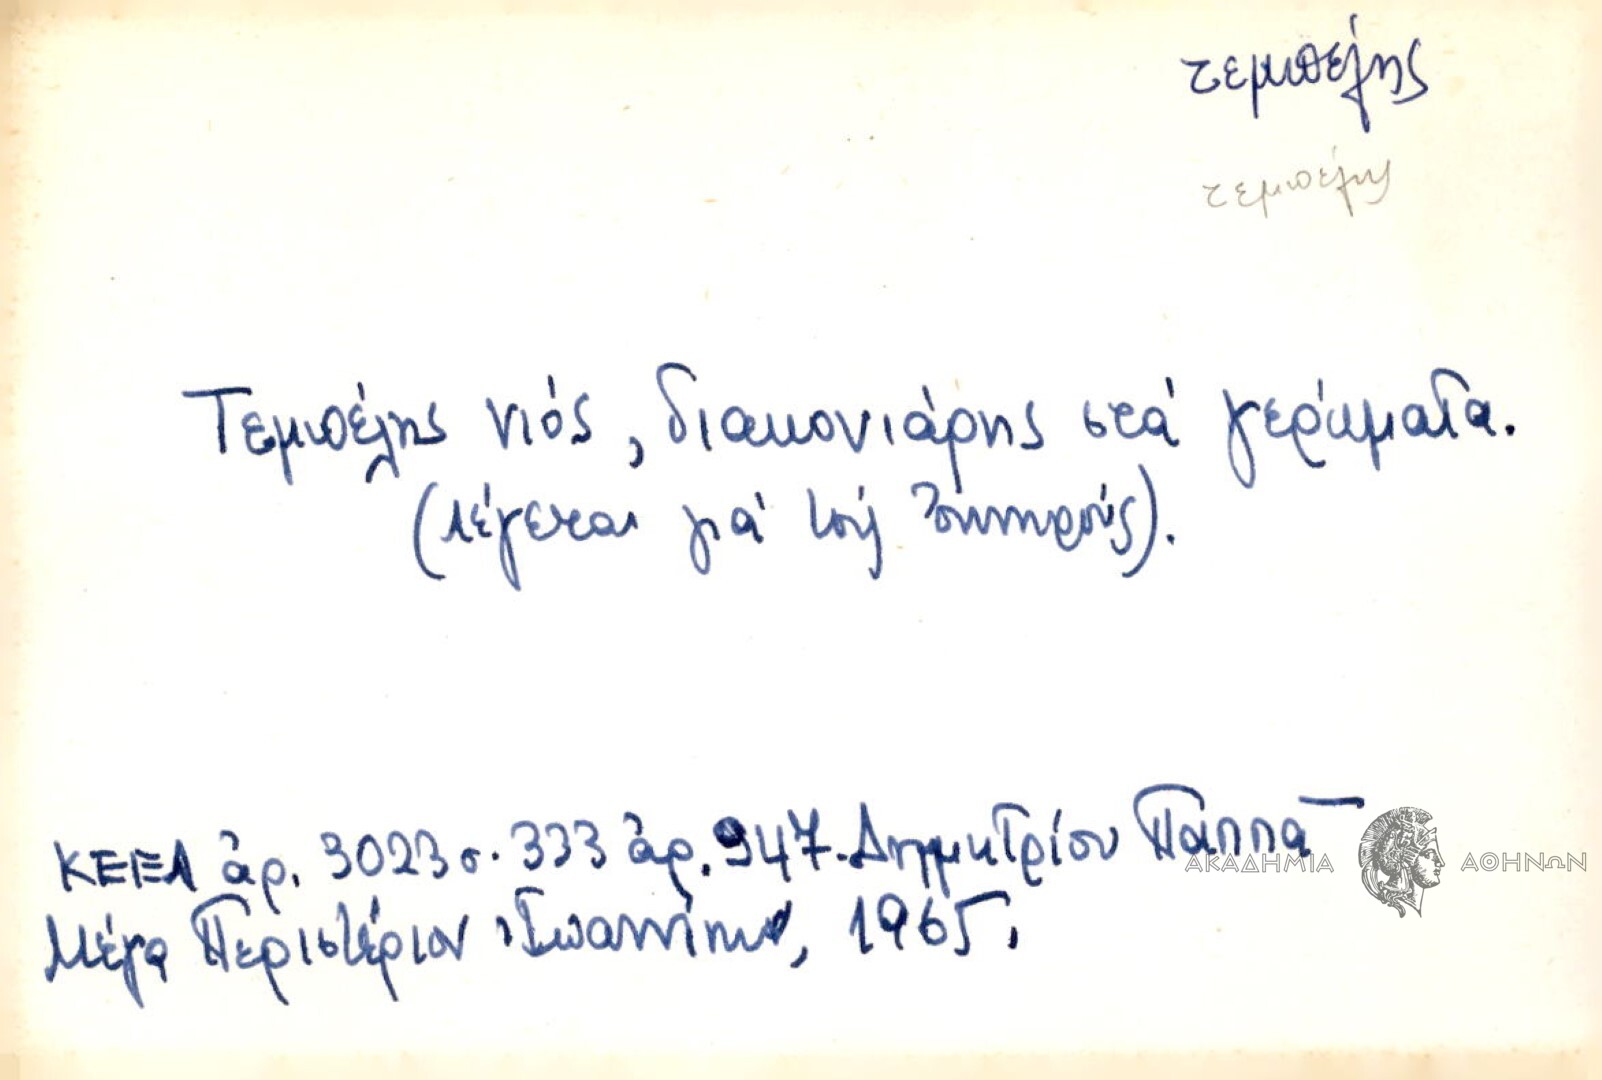 τεμπέλης
τεμπέλης
Τεμπέλης νιός, διακονιάρης στά γεράματα.
(λέγεται γιά τούς).
ΚΕΕΛ ἀρ. 3023 σ. 333 ἀρ. 947. Δημητρίου Παππᾶ
Μέγα Περιστέριον Ἰωαννίνων, 1965.
ΑΚΑΔΗΜΙΑ ΑΘΗΝΩΝ